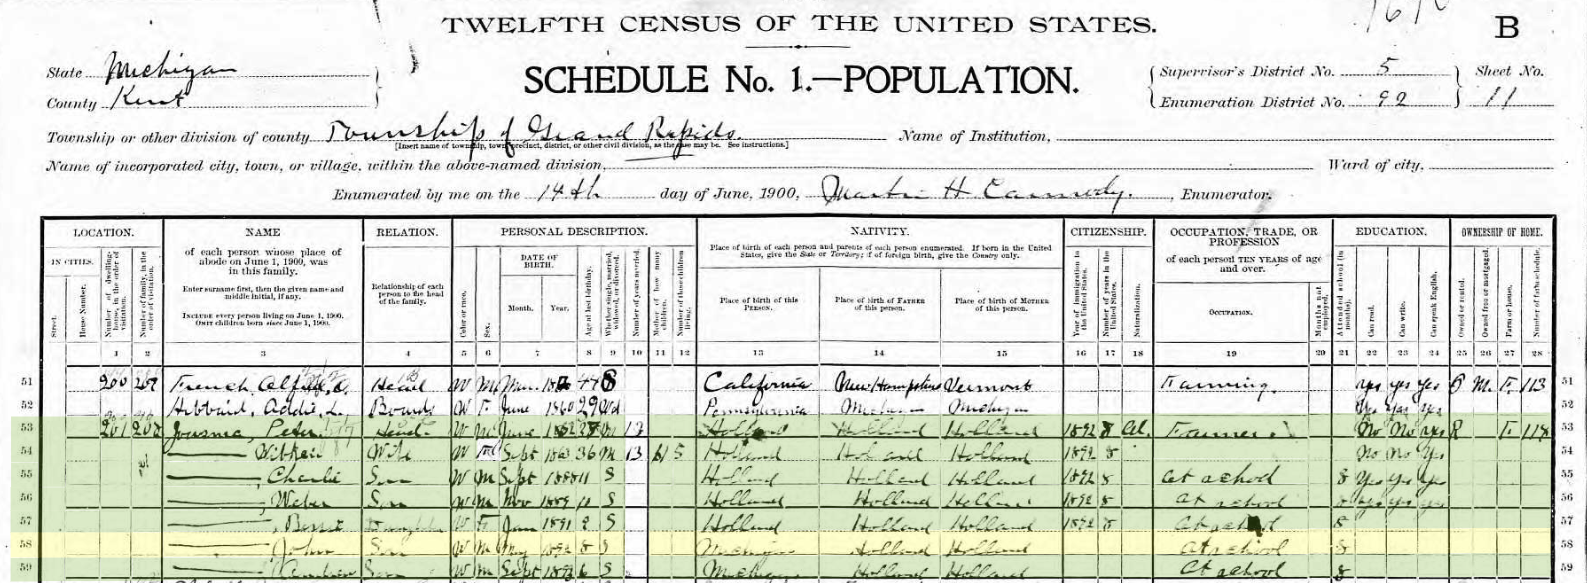 TWELFTH CENSUS OF THE UNITED STATES.
B
State Michigan
County Kent
SCHEDULE No. 1.—POPULATION.
Supervisor's District No. 5
Enumeration District No. 92
Sheet No.
11
Township or other division of county Township of Grand Rapids.
[Insert name of township, town, precinct, district, or other civil division, as the case may be. See instructions.]
Name of Institution,
Name of incorporated city, town, or village, within the above-named division,
Ward of city,
Enumerated by me on the 14th day of June, 1900, Martin H. , Enumerator.
LOCATION.
IN CITIES.
Street.
House Number.
Number of dwelling-house, in the order of visitation.
Number of family, in the order of visitation.
NAME
of each person whose place of abode on June 1, 1900, was in this family.
Enter surname first, then the given name and middle initial, if any.
INCLUDE every person living on June 1, 1900.
OMIT children born since June 1, 1900.
RELATION.
Relationship of each person to the head of the family.
PERSONAL DESCRIPTION.
Color or race.
Sex.
DATE OF BIRTH.
Month.
Year.
Age at last birthday.
Whether single, married, widowed, or divorced.
Number of years married.
Mother of how many children.
Number of these children living.
NATIVITY.
Place of birth of each person and parents of each person enumerated. If born in the United States, give the State or Territory; if of foreign birth, give the Country only.
Place of birth of this PERSON.
Place of birth of FATHER of this person.
Place of birth of MOTHER of this person.
CITIZENSHIP.
Year of immigration to the United States.
Number of years in the United States.
Naturalization.
OCCUPATION, TRADE, OR PROFESSION
of each person TEN YEARS of age and over.
OCCUPATION.
Months not employed.
EDUCATION.
Attended school (in months).
Can read.
Can write.
Can speak English.
OWNERSHIP OF HOME.
Owned or rented.
Owned free or mortgaged.
Farm or house.
Number of farm schedule.
1 2 3 4 5 6 7 8 9 10 11 12 13 14 15 16 17 18 19 20 21 22 23 24 25 26 27 28
51 200 French, Head W M California New Hampshire Vermont Farming yes yes yes O M. F. 113 51
52 Hibbard, Addie L. W F June 1860 29 Wd Pennsylvania Michigan Michigan Yes Yes Yes 52
53 201 Jousma, Peter Head W M June M 13 Holland Holland Holland 1892 8 Al. Farmer No No yes R F. 53
54 Wife W F Sept 1863 36 M 13 6 5 Holland Holland Holland 1892 8 No No Yes 54
55 , Charlie Son W M Sept 1888 11 S Holland Holland Holland 1892 8 At school 8 Yes Yes Yes 55
56 , Weber Son W M Nov 1889 10 S Holland Holland Holland 1892 8 At school 8 yes yes yes 56
57 Daughter W F 1891 S Holland Holland Holland 1892 8 At school 8 57
58 , John Son W M May 1892 8 S Michigan Holland Holland At school 8 58
59 Son W M Sept 1893 6 S Michigan Holland Holland At school 8 59